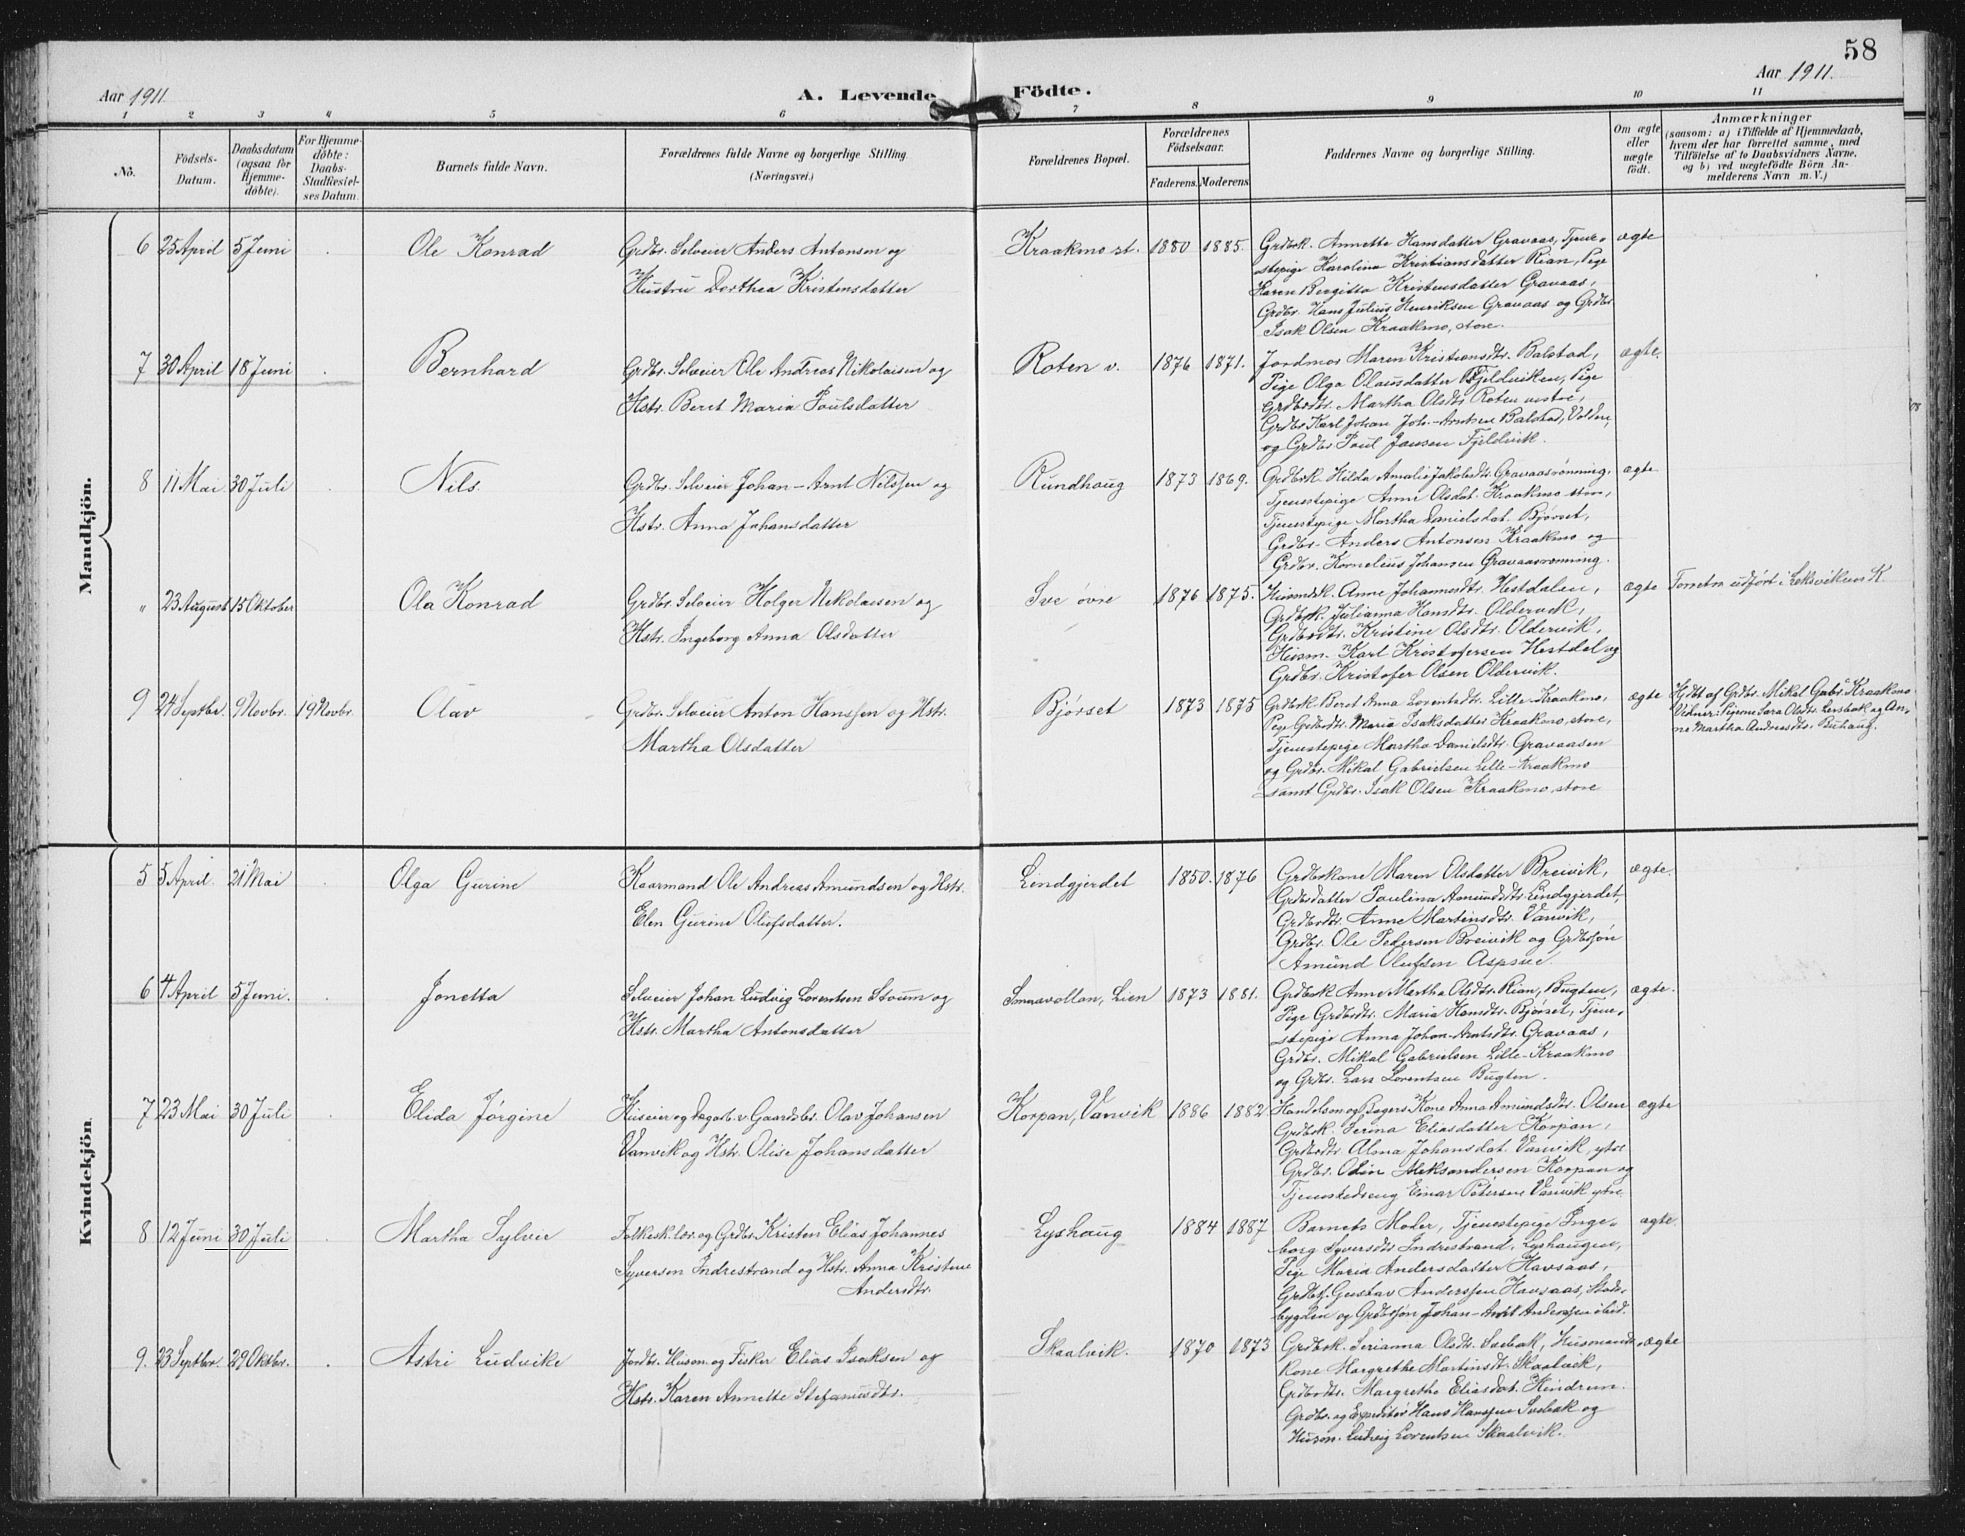 58
Aar 1911.
A. Levende
Födte.
Aar 1911.
1 2 3 4 5 6 7 8 9 10 11
No.
Födsels-
Datum.
Daabsdatum
(ogsaa for
Hjemme-
döbte).
For Hjemme-
döbte:
Daabs-
Stadfæstel-
ses Datum.
Barnets fulde Navn.
Forældrenes fulde Navne og borgerlige Stilling
(Næringsvei.)
Forældrenes Bopæl.
Forældrenes
Födselsaar.
Faderens. Moderens
Faddernes Navne og borgerlige Stilling.
Om ægte
eller
uægte
födt.
Anmærkninger
(saasom: a) i Tilfælde af Hjemmedaab,
hvem der har forrettet samme, med
Tilföielse af to Daabsvidners Navne,
og b) ved uægtefödte Börn An-
melderens Navn m. V.)
Mandkjön.
6 25 April 5 Juni Ole Konrad
Grdbr. Selveier Anders Antonsen og
Hustru Dorthea Kristensdatter
Kraakmo st. 1880 1885.
Grdbrk. Annette Hansdatter Gravaas, Tjene-
stepige Karolina Kristiansdatter Rian, Pige
Karen Bergitta Kristensdatter Gravaas,
Grdbr. Hans Julius Henriksen Gravaas og Grdbr.
Isak Olsen Kraakmo, store.
ægte
7 30 April 18 Juni Bernhard
Grdbr. Selveier Ole Andreas Nikolaisen og
Hstr. Beret Maria Poulsdatter
Roten v. 1876 1871.
Jordmor Maren Kristiansdtr. Balstad,
Pige Olga Olausdatter Fjeldviken, Pige
Grdbrdtr. Martha Olsdtr. Roten vestre,
Grdbr. Karl Johan Joh.-Arntsen Balstad, Volden,
og Grdbr. Paul Jansen Fjeldvik.
ægte.
8 11 Mai 30 Juli Nils.
Grdbr. Selveier Johan-Arnt Nilssen og
Hstr. Anna Johansdatter
Rundhaug 1873 1869.
Grdbrk. Hilda Amalie Jakobsdtr. Gravaasrønning,
Tjenestepige Anne Olsdat. Kraakmo store,
Tjenestepige Martha Danielsdat. Bjørset,
Grdbr. Anders Antonsen Kraakmo og
Grdbr. Kornelius Johansen Gravaasrønning.
ægte
" 23 August 15 Oktober Ola Konrad
Grdbr. Selveier Holger Nikolaisen og
Hstr. Ingeborg Anna Olsdatter
Sve øvre 1876 1875.
Husmdsk. Anne Johannesdtr. Hestdalen,
Grdbrk. Julianna Hansdtr. Oldervik,
Grdbrdtr. Kristine Olsdtr. Oldervik,
Husm. Karl Kristofersen Hestdal og
Grdbr. Kristofer Olsen Oldervik.
ægte
Forretn. udført i Leksvikens K.
9 24 Septbr. 9 Novbr. 19 Novbr. Olav
Grdbr. Selveier Anton Hanssen og Hstr.
Martha Olsdatter
Bjørset 1873 1875
Grdbrk. Beret Anna Lorentsdtr. Lille-Kraakmo,
Pige Grdbrdtr. Maria Isaksdatter Kraakmo, store,
Tjenestepige Martha Danielsdtr. Gravaasen
og Grdbr. Mikal Gabrielsen Lille-Kraakmo
samt Grdbr. Isak Olsen Kraakmo, store
ægte
Hjdbt af Grdbr. Mikal Gabr. Kraakmo
Vidner: Pigerne Sara Olsdtr. Lersbak og An-
ne Martha Andreasdtr. Buhaug.
Kvindekjön.
5 5 April. 21 Mai Olga Gurine
Kaarmand Ole Andreas Amundsen og Hstr.
Elen Gurine Olufsdatter.
Lindgjerdet 1850. 1876
Grdbrkone Maren Olsdatter Breivik,
Grdbrdatter Paulina Amundsdtr. Lindgjerdet,
Grdbrdtr. Anne Martinsdtr. Vanvik,
Grdbr. Ole Pedersen Breivik og Grdbrsøn
Amund Olufsen
ægte.
6 4 April 5 Juni. Jonetta
Selveier Johan Ludvig Lorentsen Stoum og
Hstr. Martha Antonsdatter
Smaavollan, Lien 1873 1881.
Grdbrk Anne Martha Olsdtr. Rian, Bugten,
Pige Grdbrdtr. Maria Hansdtr. Bjørset, Tjene-
stepige Anna Johan-Arntsdtr. Gravaas,
Grdbr. Mikal Gabrielsen Lille-Kraakmo
og Grdbr. Lars Lorentsen Bugten.
ægte.
7 23 Mai 30 Juli Elida Jørgine
Huseier og Dagarb. v. Gaardsbr. Olav Johansen
Vanvik og Hstr. Olise Johansdatter
Korpan, Vanvik 1886 1882
Handelsm og Bagers Kone Anna Amundsdtr. Olsen
Grdbrk. Serina Eliasdatter Korpan,
Grdbrdtr. Alma Johansdat. Vanvik, ytre
Grdbr. Odin Aleksandersen Korpan og
Tjenestedreng Einar Petersen Vanvik ytre
ægte
8 12 Juni 30 Juli Martha Sylvie
Folkesk.lær. og Grdbr. Kristen Elias Johannes
Syversen Indrestrand og Hstr. Anna Kristine
Andersdtr.
Lyshaug 1884 1887
Barnets Moder, Tjenestepige Inge-
borg Syversdtr. Indrestrand, Lyshaugen,
Pige Maria Andersdatter Havsaas,
Grdbrs. Gustav Anderssen Havsaas, Stads-
bygden og Grdbrsøn Johan-Arnt Anderssen ibid.
ægte
9. 23 Septbr. 29 Oktbr. Astri Ludvike
Jordbr. Husm. og Fisker Elias Isaksen og
Hstr. Karen Annette Stefanusdtr.
Skaalvik. 1870 1873
Grdbrk. Serianna Olsdtr. Svebak, Husmands-
kone Margrethe Martinsdt. Skaalvik,
Grdbrdtr. Margrethe Eliasdat. Hindrum.
Grdbr. og Expeditør Hans Hanssen Svebak og
Husm. Ludvig Lorentsen Skaalvik.
ægte